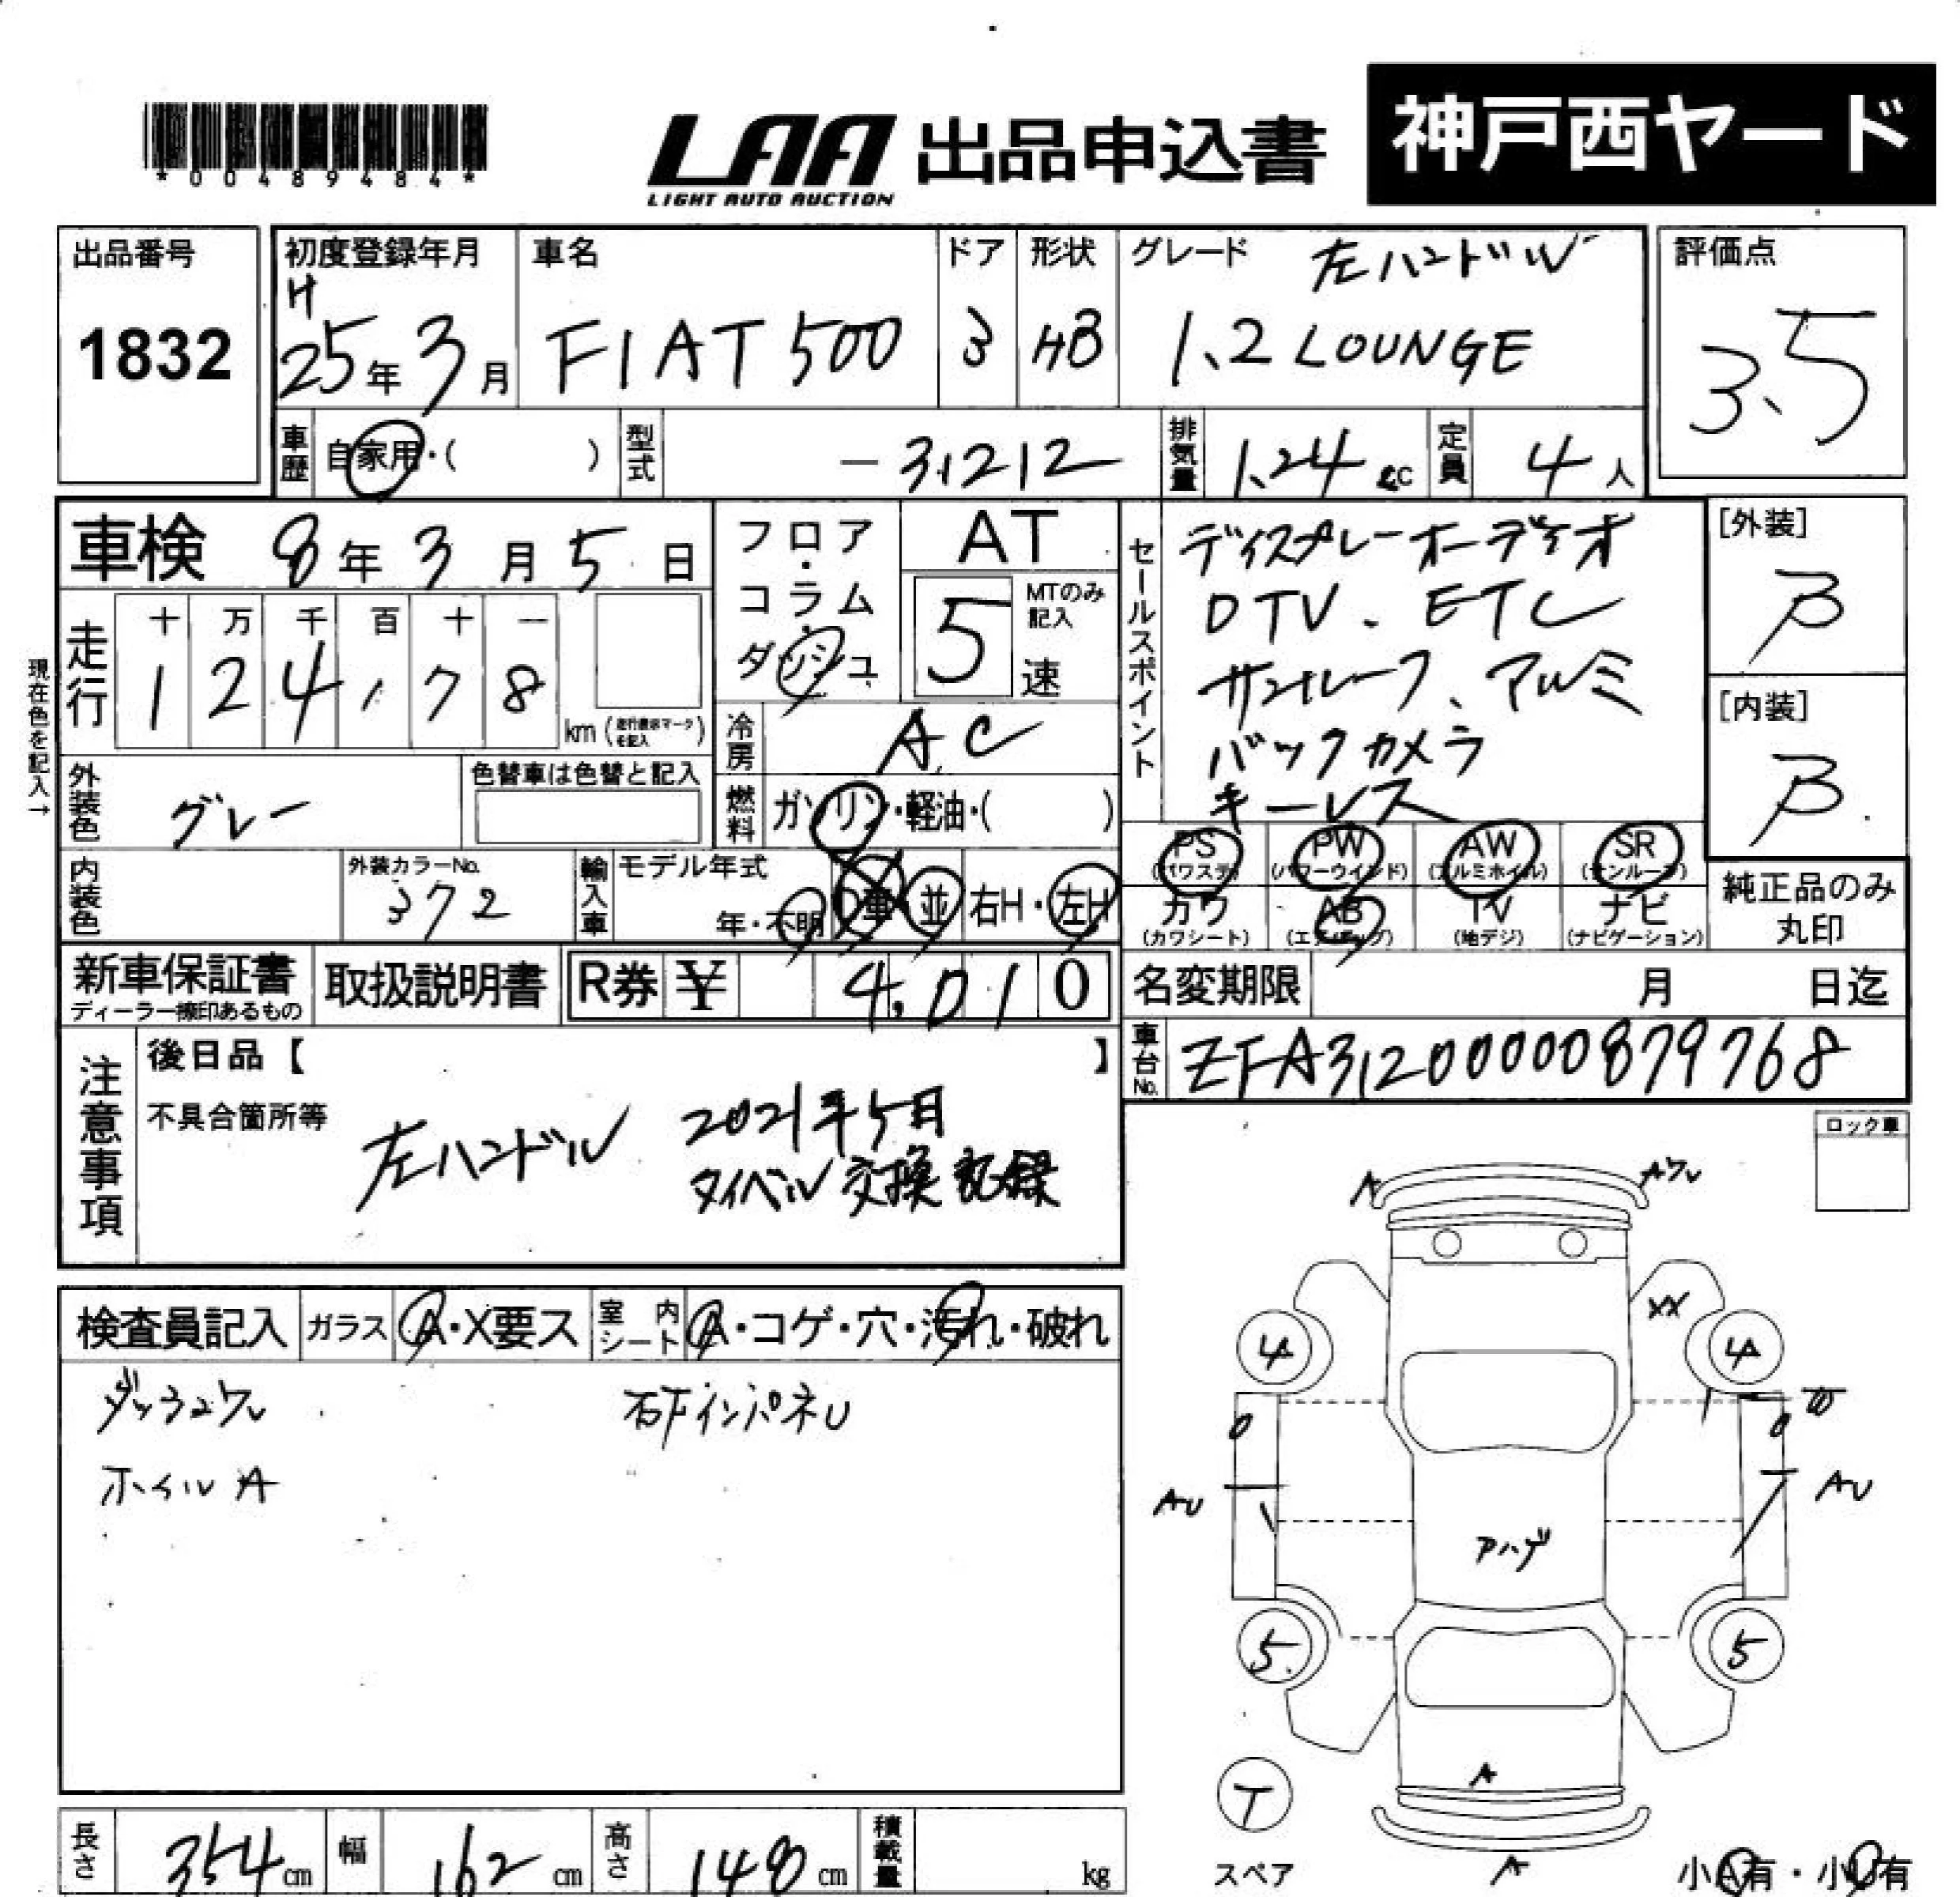 *00489484*
LAA 出品申込書 神戸西ヤード
LIGHT AUTO AUCTION
出品番号
1832
初度登録年月
H
25年3月
車名
FIAT 500
ドア
3
形状
HB
グレード 左ハンドル
1.2 LOUNGE
評価点
3.5
車歴 自家用・( )
型式 -31212
排気量 1.24 cc
定員 4人
車検 8年3月5日
現在色を記入→
走行
十 万 千 百 十 一
1 2 4 1 7 8
km
フロア・
コラム・
ダッシュ
AT
5速
MTのみ
記入
冷房 AC
燃料 ガソリン・軽油・( )
外装色 グレー
色替車は色替と記入
内装色
外装カラーNo.
372
輸入車
モデル年式
年・不明
並
右H・左H
セールスポイント
ディスプレーオーディオ
DTV. ETC
サンルーフ、アルミ
バックカメラ
キーレス
PS
(パワステ)
PW
(パワーウインド)
AW
(アルミホイル)
SR
(サンルーフ)
カワ
(カワシート)
AB
(エアバッグ)
TV
(地デジ)
ナビ
(ナビゲーション)
[外装]
B
[内装]
B
純正品のみ
丸印
新車保証書
ディーラー捺印あるもの
取扱説明書
R券 ¥ 4,010
名変期限 月 日迄
車台No. ZFA31200000879768
注意事項
後日品【 】
不具合箇所等
左ハンドル
2021年5月
タイベル交換記録
ロック車
検査員記入
ガラス A・X要ス
室内シート A・コゲ・穴・汚れ・破れ
ホイルA
A
XX
4
4
AU
AU
アハゲ
5
5
T
スペア
A
A
小A有・小U有
長さ 354cm
幅 162cm
高さ 148cm
積載量 kg